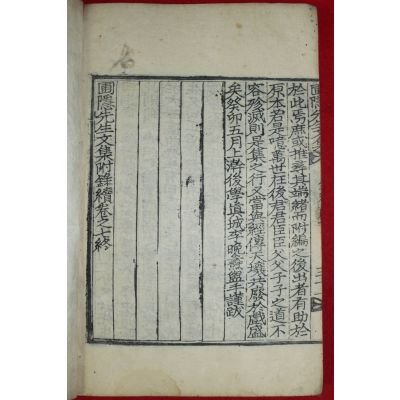 於此焉庶或推尋其端緖而附編之後出者有助於
原本君是嗜萬世在後君君臣臣父父子子之道不
容殄滅則是集之行又當與經傳天壤共廢於戲盛
矣癸卯五月上澣後學眞城李晩 盥手謹跋
圃隱先生文集附錄續卷之七終